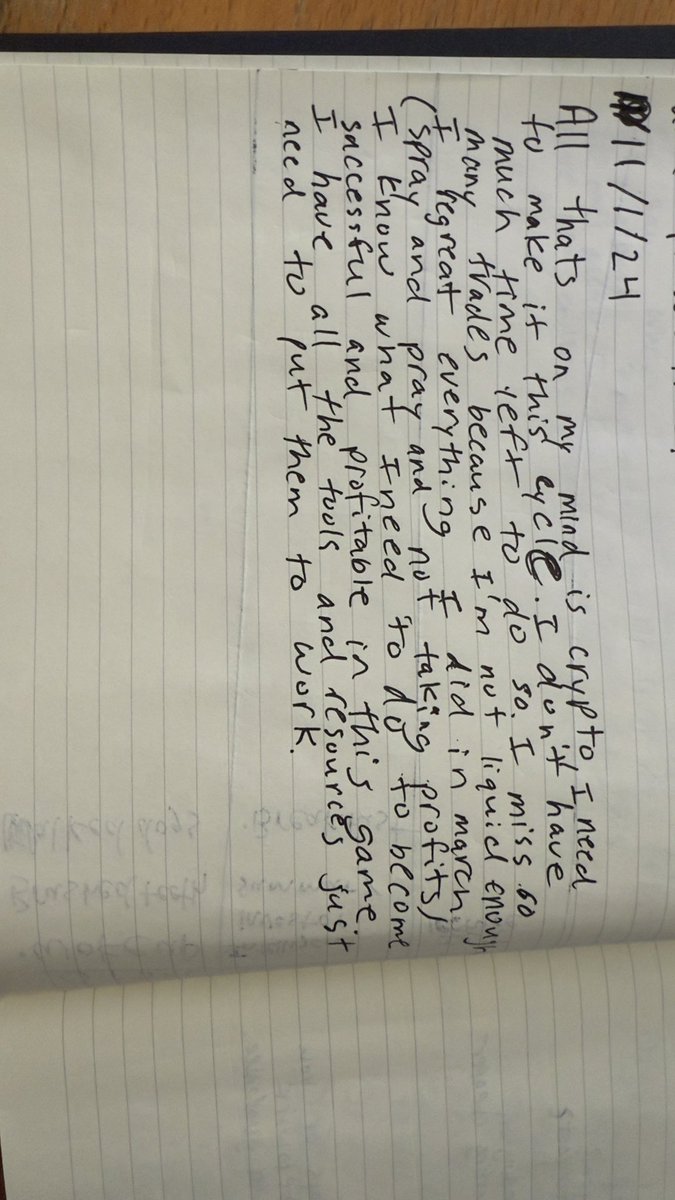 11/1/24
All thats on my mind is crypto I need
to make it this cycle. I don't have
much time left to do so. I miss so
many trades because I'm not liquid enough
I regreat everything I did in march
(spray and pray and not taking profits)
I know what I need to do to become
successful and profitable in this game
I have all the tools and resources just
need to put them to work.